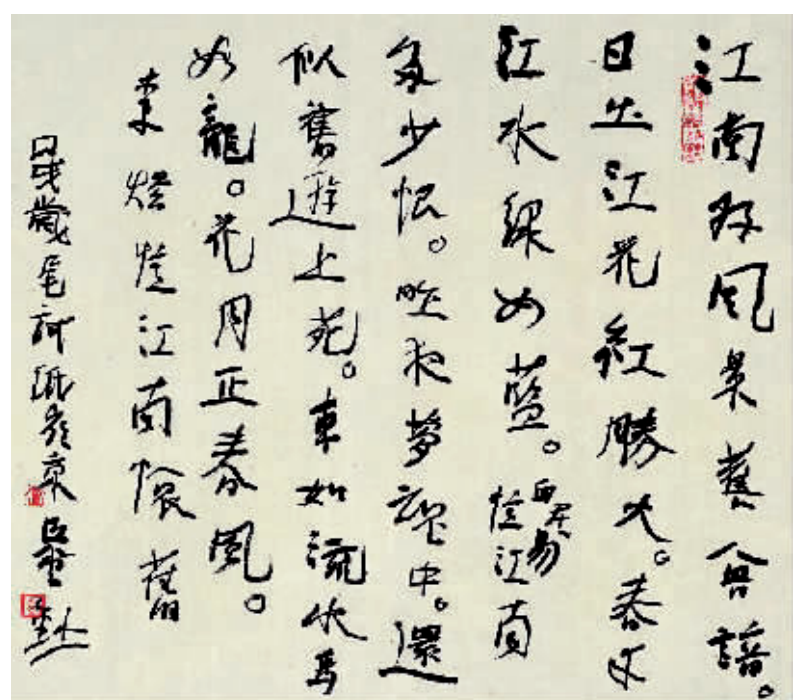 江南好風景舊曾諳。
日出江花紅勝火。春來
江水綠如藍。白居易憶江南
多少恨。昨夜夢魂中。還
似舊遊上苑。車如流水馬
如龍。花月正春風。
李煜憶江南懷舊
歲尾